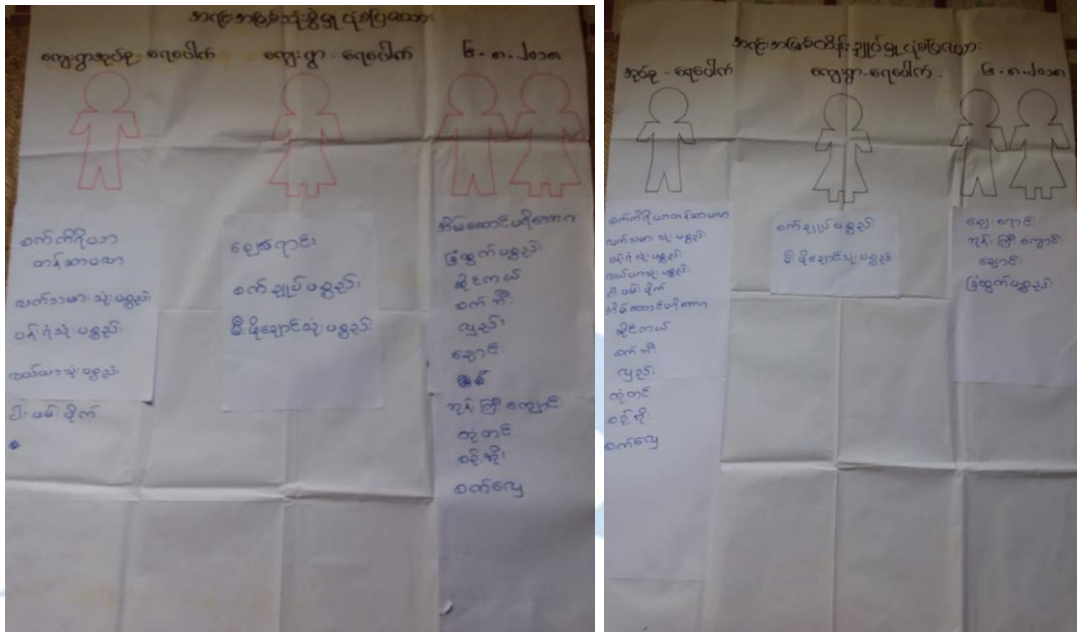 အရင်းအမြစ်သုံးစွဲမှု ပုံစံပြဇယား
ကျေးရွာအုပ်စု - ရေပေါက်
ကျေးရွာ - ရေပေါက်
၆.၈.၂၀၁၈
စက်ကိရိယာ
တန်ဆာပလာ
လက်သမားသုံးပစ္စည်း
ပန်းရံသုံးပစ္စည်း
လယ်ယာသုံးပစ္စည်း
ငါးဖမ်းပိုက်
ဈေးရောင်း
စက်ချုပ်ပစ္စည်း
မီးဖိုချောင်သုံးပစ္စည်း
အိမ်ထောင်ပရိဘောဂ
ခြံထွက်ပစ္စည်း
ဆိုင်ကယ်
စက်ဘီး
လှည်း
ချောင်း
ဘုန်းကြီးကျောင်း
တုံကင်
စဉ့်အိုး
စက်လှေ
အရင်းအမြစ်ထိန်းချုပ်မှု ပုံစံပြဇယား
အုပ်စု - ရေပေါက်
ကျေးရွာ - ရေပေါက်
၆.၈.၂၀၁၈
စက်ကိရိယာတန်ဆာပလာ
လက်သမားသုံးပစ္စည်း
ပန်းရံသုံးပစ္စည်း
လယ်ယာသုံးပစ္စည်း
ငါးဖမ်းပိုက်
အိမ်ထောင်ပရိဘောဂ
ဆိုင်ကယ်
စက်ဘီး
လှည်း
တုံကင်
စဉ့်အိုး
စက်လှေ
စက်ချုပ်ပစ္စည်း
မီးဖိုချောင်သုံးပစ္စည်း
ဈေးရောင်း
ဘုန်းကြီးကျောင်း
ချောင်း
ခြံထွက်ပစ္စည်း